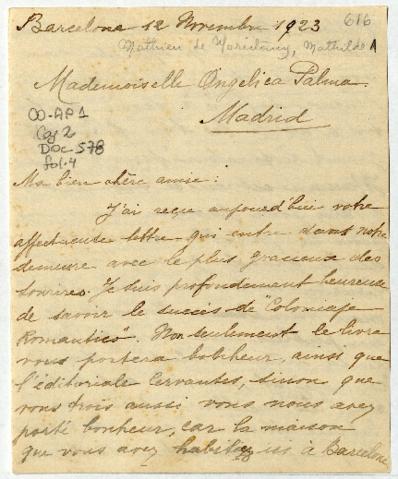 Barcelone 12 Novembre 1923
616
Mathieu de Mademoiselle Angelica Palma
Madrid
CO-AP1
Caj 2
Doc 578
fol. 4
Ma bien chère amie :
J'ai reçue aujourd'hui votre
affectueuse lettre qui entre dans notre
demeure avec le plus gracieux des
sourires. Je suis profondement heureuse
de savoir le succès de "Coloniaje
Romantico". Non seulement le livre
vous portera bohheur, ainsi que
l'éditoriale Cervantes, sinon que
vous trois aussi vous nous avez
porté bonheur, car la maison
que vous avez habitéz ici à Barcelone